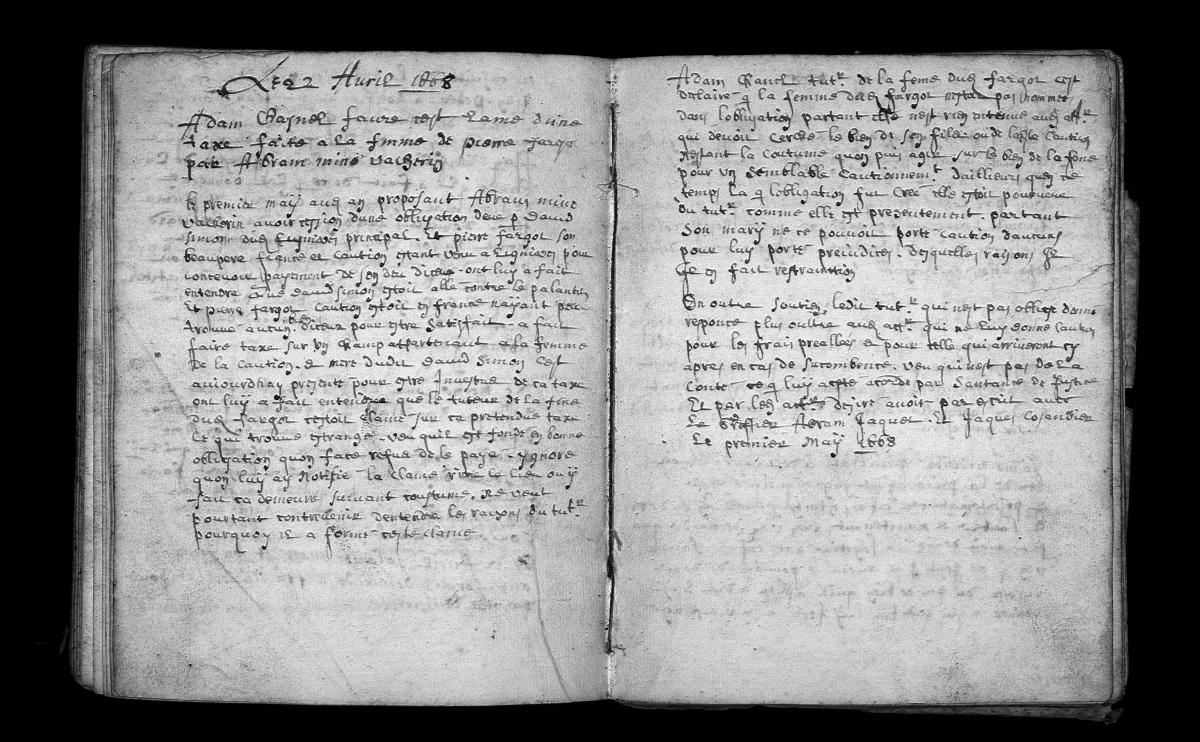 Le 22 Avril 1668
Adam Gasnel faure cest clame dune
taxe faite a la femme de pierre fargo
par Abram mino vacherin
le premier may aud an proposant Abram mino
vacherin avoir cession dune obligation deue p david
simon dud Lignieres principal. Et pierre fargot son
beaupere fiance et caution estant venu a Lignieres pour
concevoir payement de son deu ont luy a fait
entendre que david simon estoit alle contre le palantin
Et pierre fargot caution estoit en france nayant peu
trouve aucun pour estre satisfait a fait
faire taxe sur un champ appartenant a la femme
de la caution & mere dudit david simon cest
aujourdhuy presente pour estre Investue de ca taxe
ont luy a fait entendre que le tuteur de la fme
dud fargot cestoit clame sur ca pretendue taxe
ce qui trouve estrange. veu quil est fonde en bonne
obligation quon face refus de le paye. ygnore
quon luy ay notifie la clame rière le lieu ou y
fait ca demeure suivant coustume. Ne veut
pourtant contrevenir dentendre les raysons du tutr
pourquoy il a forme ceste clame
Adam Ganel tutr de la feme dud fargot cest
declaire q la femme dud fargot nestat pas nommee
dans lobligation partant elle nest rien intenue aud attr
qui devoit cerche le bien de son fils ou de lad caution
Nestant la coutume quon puis agir sur le bien de la feme
pour un semblable cautionnemt dailleurs quen ce
temps la q lobligation fut cree elle estoit pourveue
du tutr comme elle est presentement. partant
son mary ne ce pouvoit porte caution daucuns
pour luy porte preiudices. desquelles raisons Il
ce en fait restrainttion
En outre soutien ledit tutr qui nest pas oblige dame
reponce plus oultre aud attr qui ne luy donne caution
pour les frais preallees & pour celle qui arriveront cy
apres en cas de sucombence. veu qui nest pas de La
Conte ce q luy acpte acorde par Santance de Justice
Et par led attr desire avoir par escrit avec
Le Greffier Abram Jaquet. Et Jaques Cosandier
Le premier May 1668